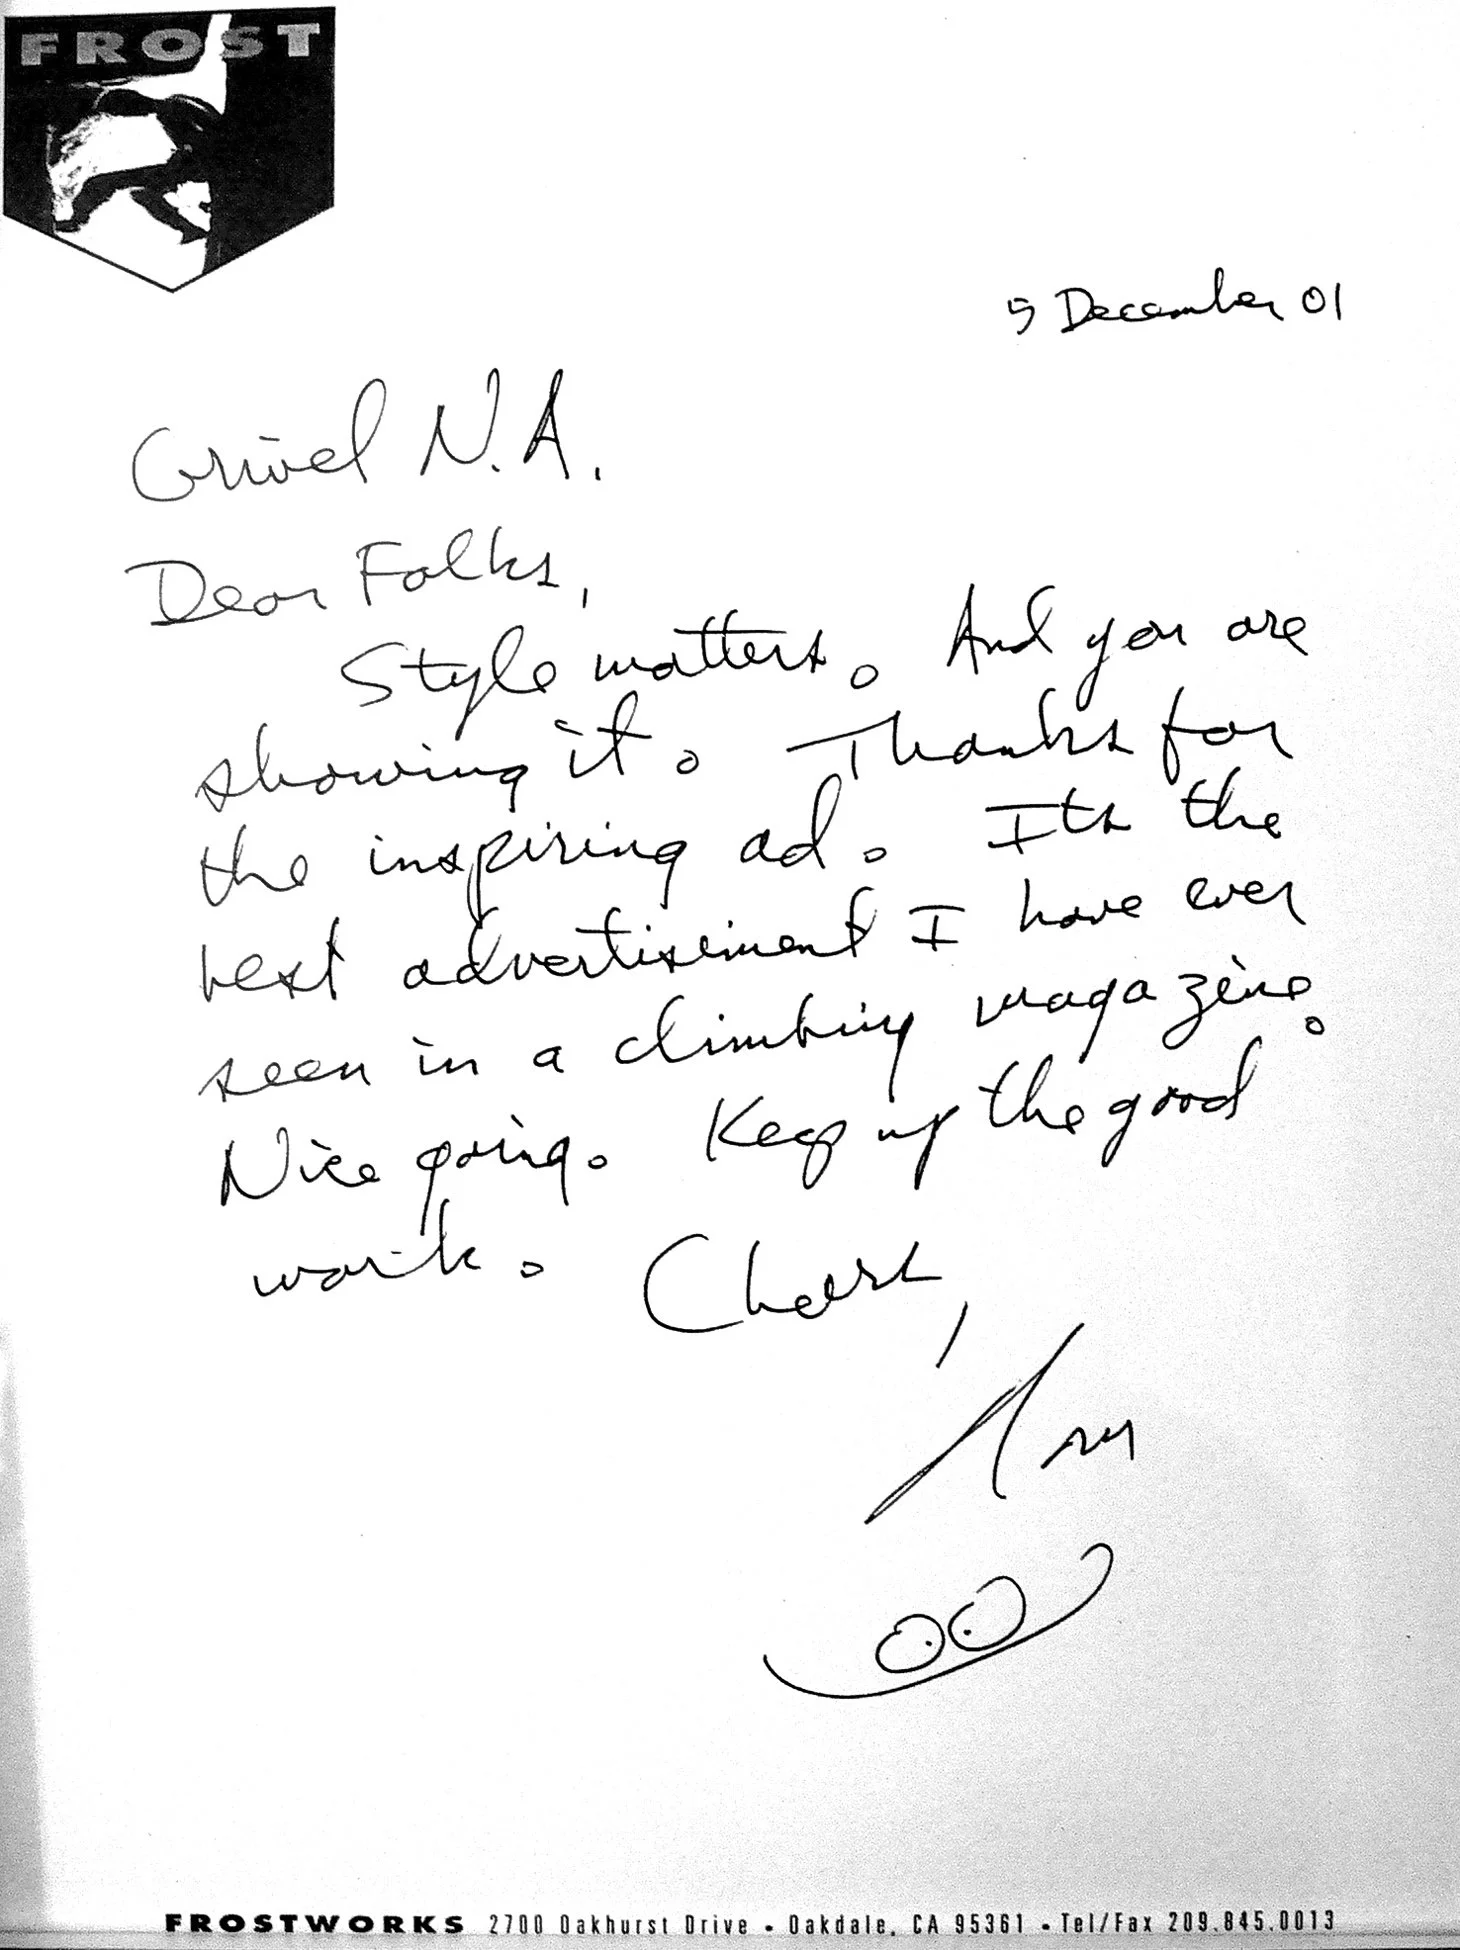 FROST
5 December 01
Grivel N.A.
Dear Folks,
Style matters. And you are
showing it. Thanks for
the inspiring ad. Its the
best advertisement I have ever
seen in a climbing magazine.
Nice going. Keep up the good
work. Cheers,
FROSTWORKS 2700 Oakhurst Drive • Oakdale, CA 95361 • Tel/Fax 209.845.0013